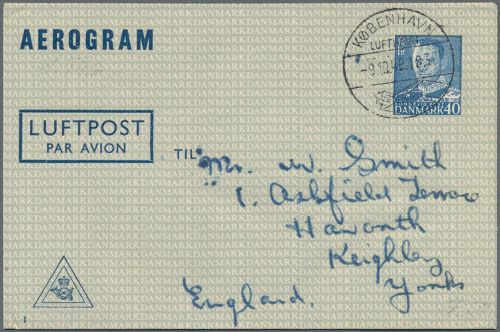 AEROGRAM
KØBENHAVN
LUFTHAVN
DANMARK 40
LUFTPOST
PAR AVION
TIL
Mr. W. Smith
1. Ashfield Terrace
Haworth
Keighley
Yorks
England.
1